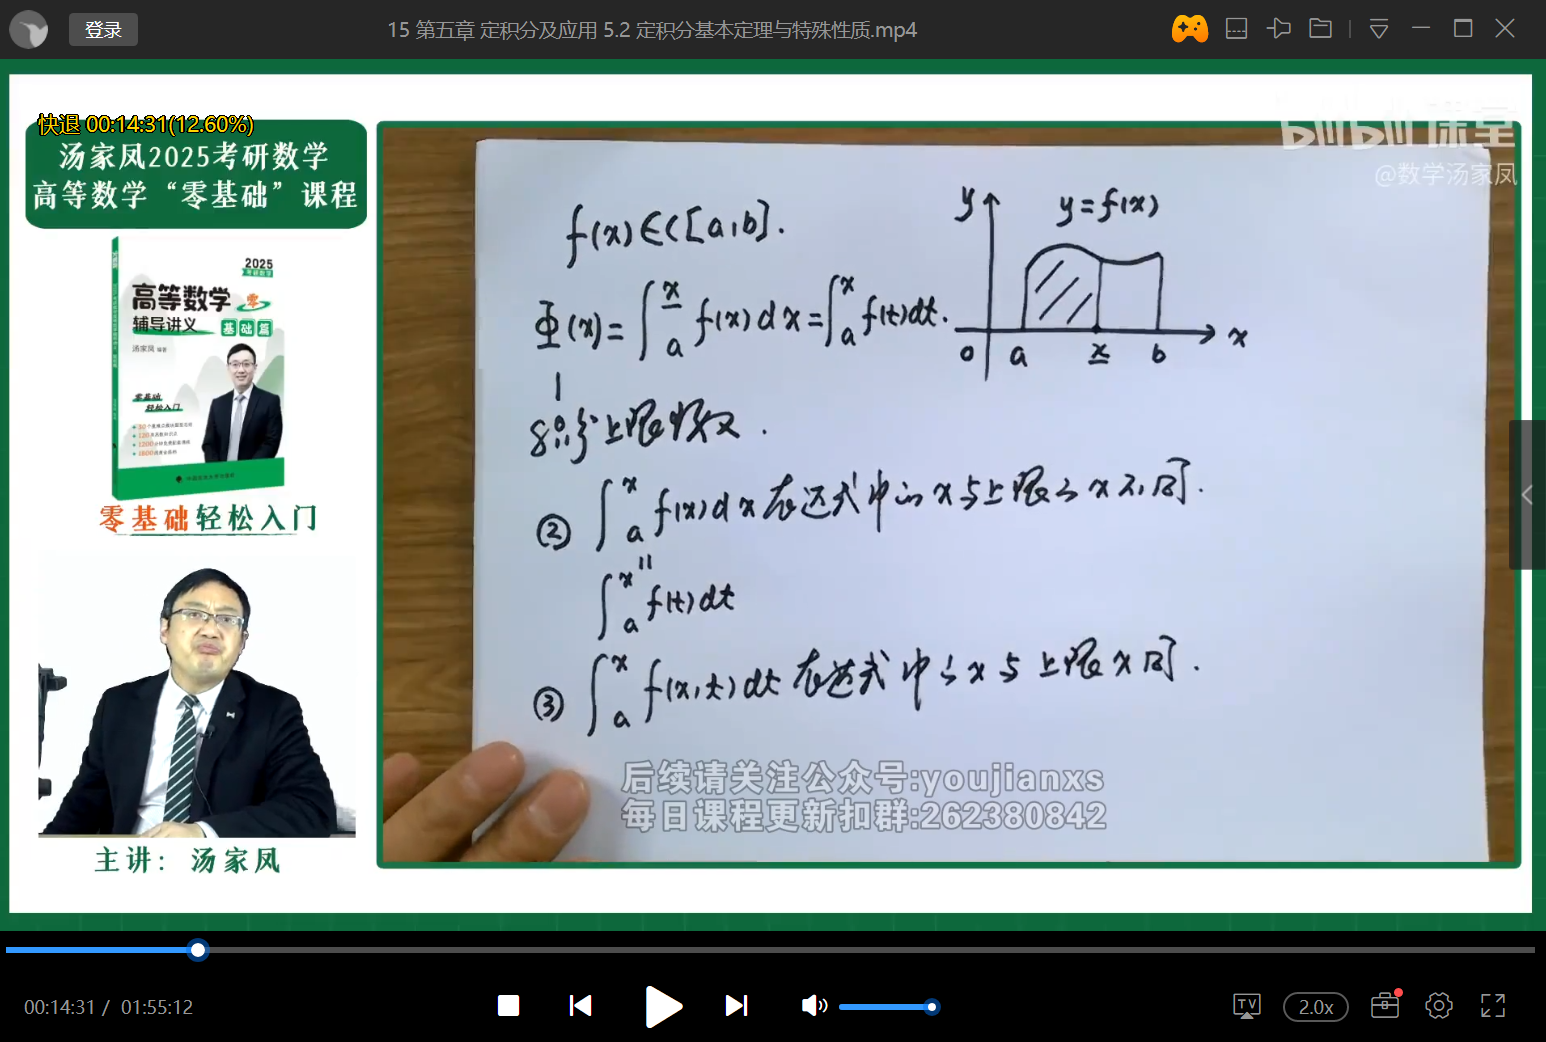 登录
15 第五章 定积分及应用 5.2 定积分基本定理与特殊性质.mp4
快退 00:14:31(12.60%)
汤家凤2025考研数学
高等数学“零基础”课程
2025
高等数学 零
辅导讲义 基础篇
汤家凤
零基础
轻松入门
零基础轻松入门
主讲：汤家凤
bilibili 课堂
@数学汤家凤
f(x)∈C[a,b].
y
y=f(x)
Φ(x)=∫ₐˣ f(x)dx=∫ₐˣ f(t)dt.
0 a x b x
积分上限函数.
② ∫ₐˣ f(x)dx 表达式中的x与上限的x不同.
∥
∫ₐˣ f(t)dt
③ ∫ₐˣ f(x,t)dt 表达式中的x与上限x同.
后续请关注公众号:youjianxs
每日课程更新扣群:262380842
00:14:31 / 01:55:12
TV
2.0x